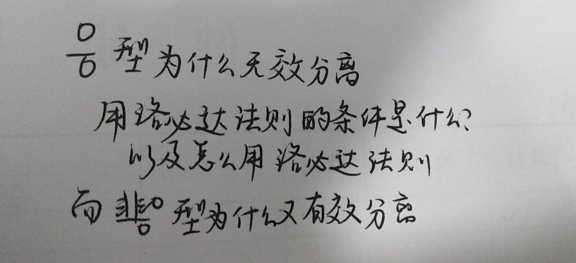 0/0 型为什么无效分离
用洛必达法则的条件是什么?
以及怎么用洛必达法则
而非0/0型为什么又有效分离